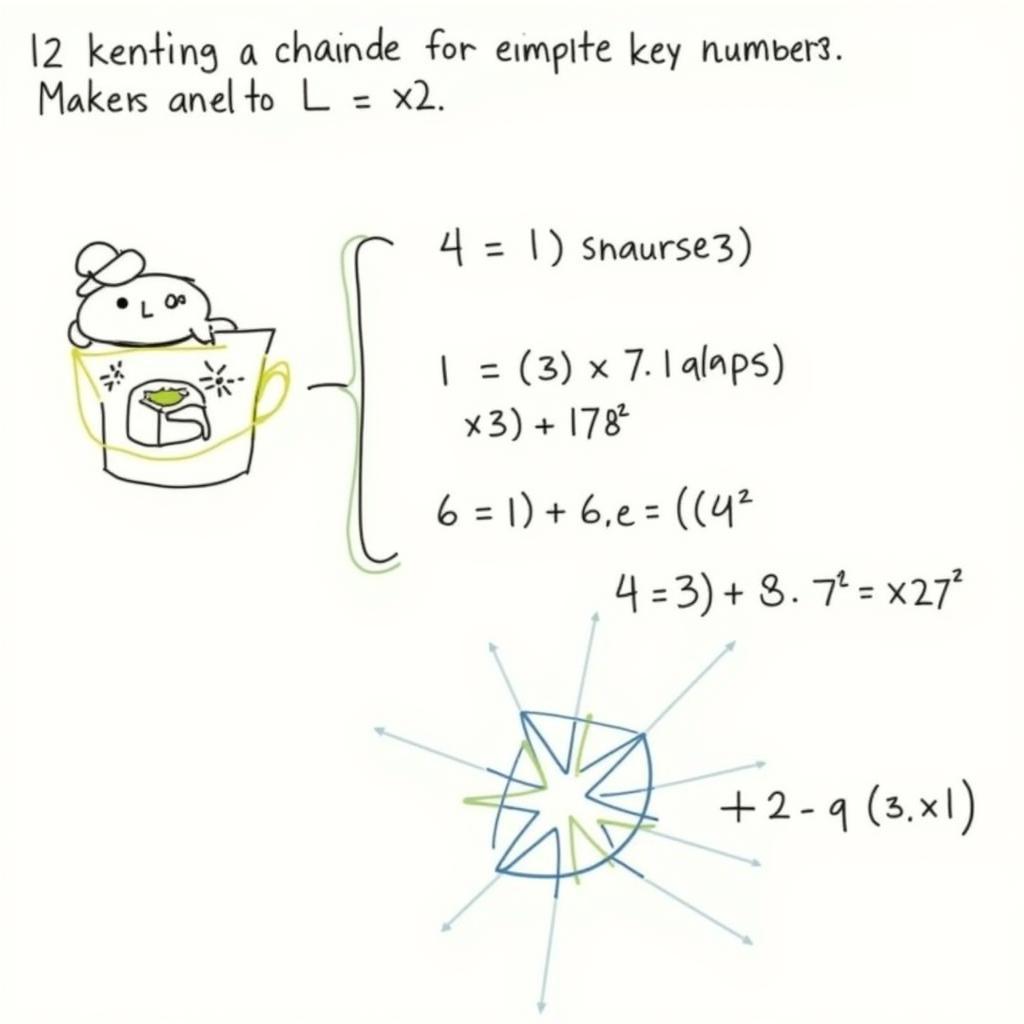 12 kenting a chainde for eimplte key number3.
Makers anel to L = x2.
L
4 = 1) snaurse3)
1 = (3) x 7.1 alaps)
x3) + 178²
6 = 1) + 6.e = ((4²
4 = 3) + 8. 7² = x27²
+ 2 - 9 (3.x1)